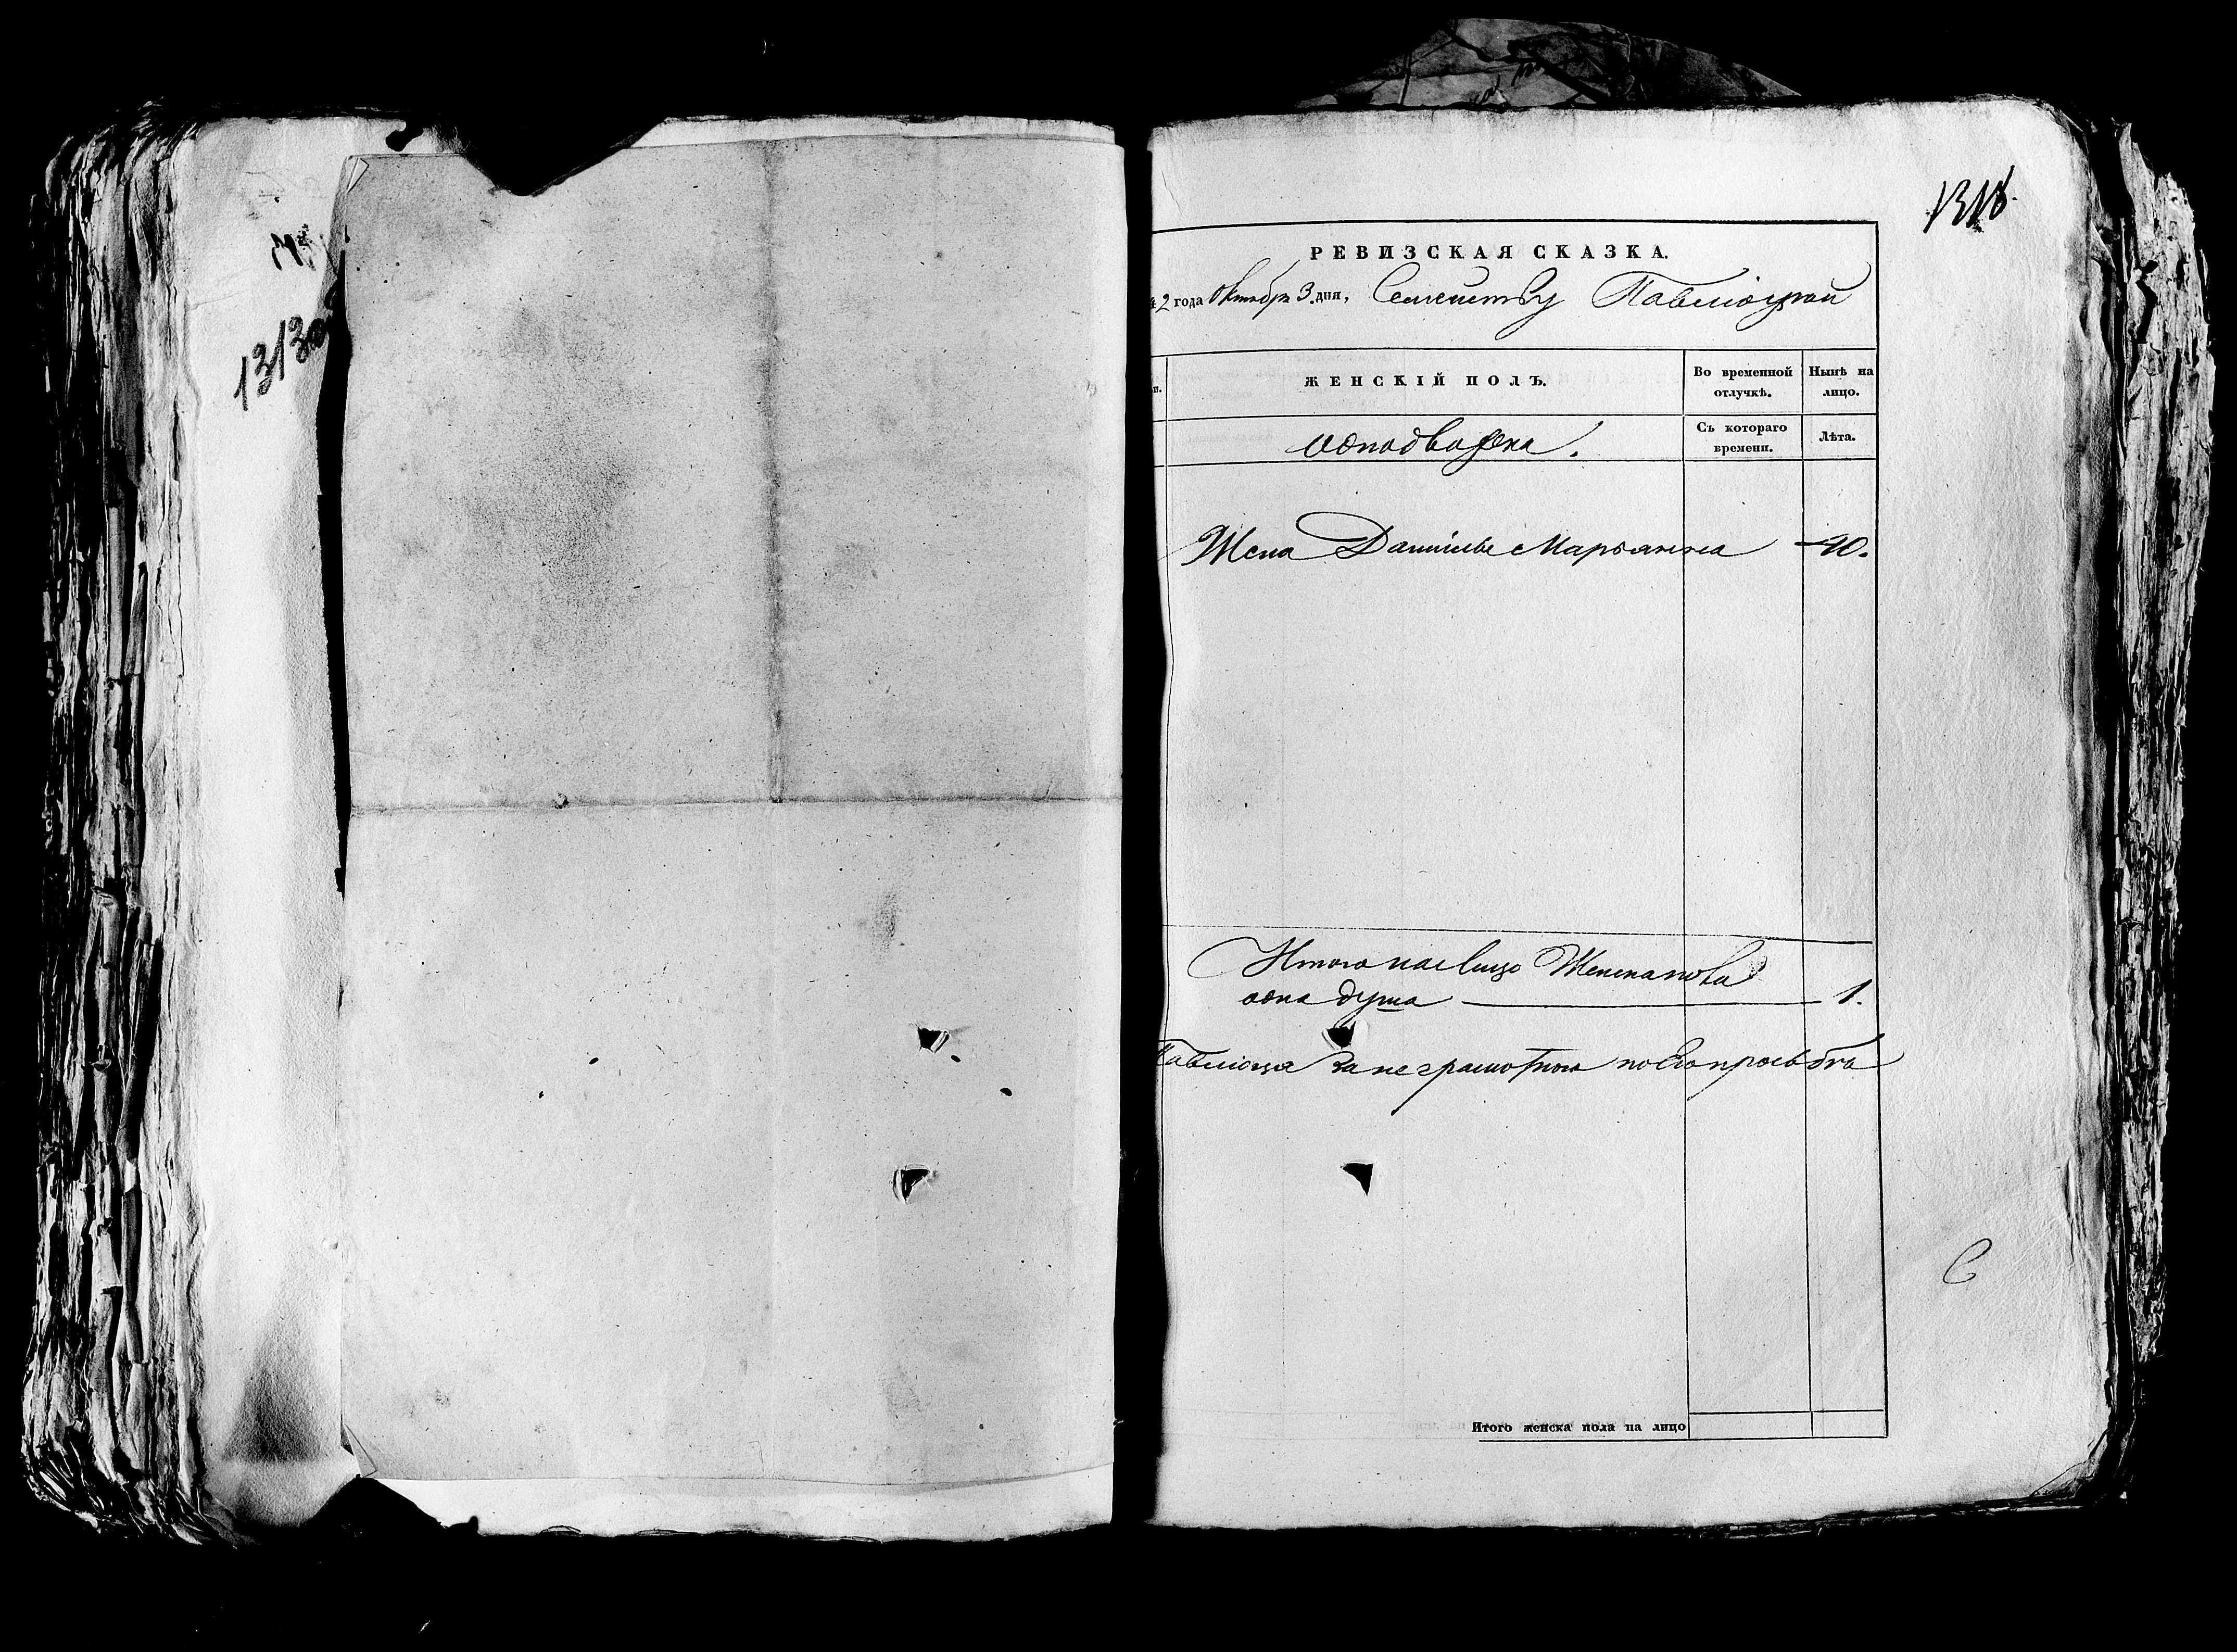 1313об
1314.
РЕВИЗСКАЯ СКАЗКА.
2 года октября 3 дня, Семейству
ЖЕНСКІЙ ПОЛЪ.
Во временной отлучкѣ.
Нынѣ на лицо.
Однодворка.
Съ котораго времени.
Лѣта.
Жена Данилы Марьянна 40.
Итого на лицо Женска пола
одна душа 1.
за неграмотною по его прозьбѣ
Итого женска пола на лицо